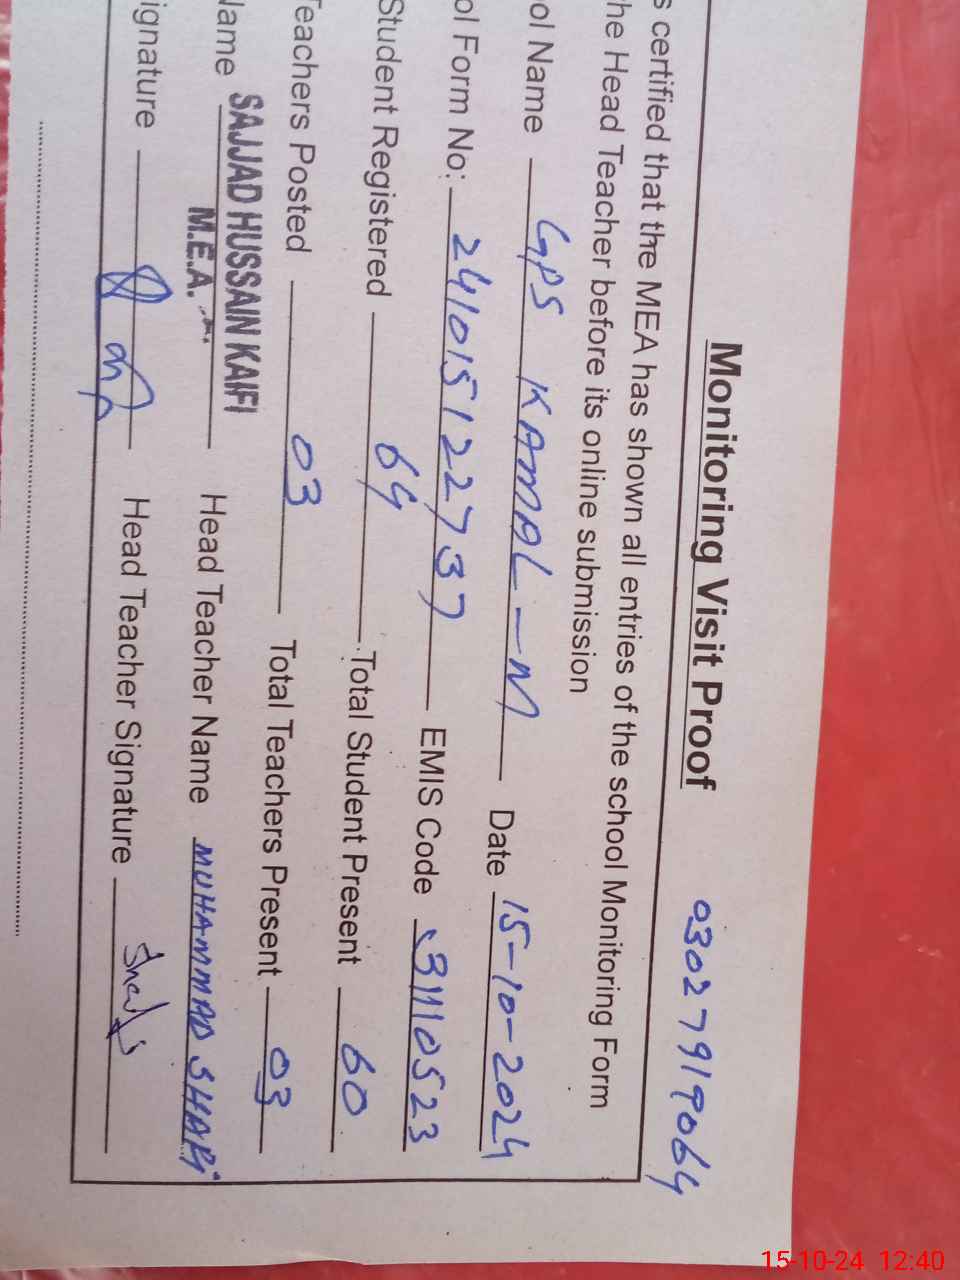 Monitoring Visit Proof 03027919064
s certified that the MEA has shown all entries of the school Monitoring Form
he Head Teacher before its online submission
ol Name GPS KAMAL-M Date 15-10-2024
ol Form No: 241015122737 EMIS Code 31110523
Student Registered 64 Total Student Present 60
Teachers Posted 03 Total Teachers Present 03
Name SAJJAD HUSSAIN KAIFI Head Teacher Name MUHAMMAD SHAFI
M.E.A.
ignature Head Teacher Signature
15-10-24 12:40